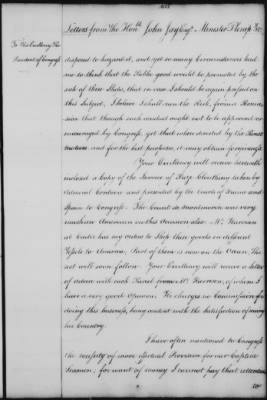 Letters from the Honble. John Jay Esqr. Minister Plenipo &c.
To His Excellency The
President of Congress
disposed to hazard it, and yet so many Circumstances lead
me to think that the Public good would be promoted by the
sale of three Ships, that in case I should be again pressed on
this Subject, I believe I shall run the Risk, from a Persua-
sion that though such conduct ought not to be approved or
encouraged by Congress, yet that when dictated by
and for the best purposes, it may obtain forgiveness
Your Excellency will receive herewith
enclosed a Copy of the of taken by
Admiral Cordova and presented by the Courts of France and
Spain to Congress. The Count de Montmorin was very
American on this Occasion also. Mr. Harrison
at Cadiz has my orders to Ship these goods on different
Vessels to America, Part of them is now on the Ocean, The
rest will soon follow. Your Excellency will receive a letter
of advice with each Parcel from Mr. Harrison, of whom I
have a very good Opinion. He charges no Commissions for
doing this business, being content with the Satisfaction of serving
his Country.
I have often mentioned to Congress
the necessity of more effectual Provision for our Captive
Seamen; for want of money I cannot pay that attention
to